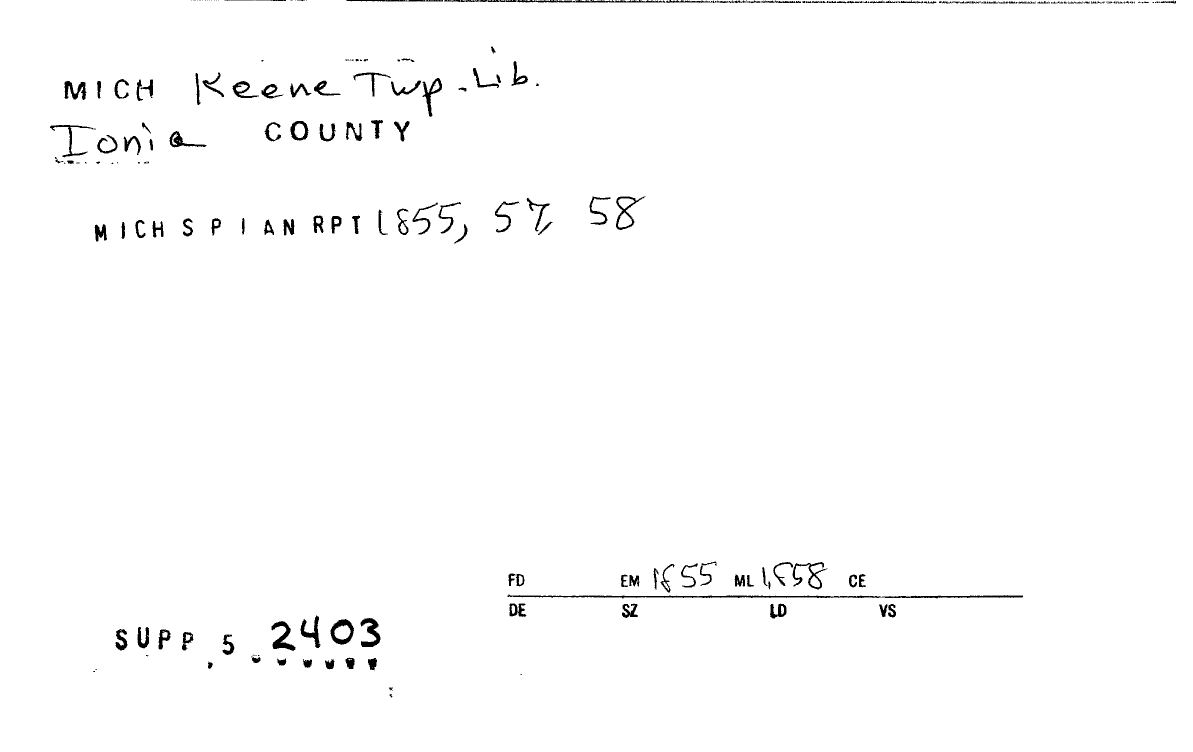 MICH Keene Twp. Lib.
Ionia COUNTY
MICH S P I AN RPT 1855, 57, 58
FD EM 1855 ML 1858 CE
DE SZ LD VS
SUPP 5 2403